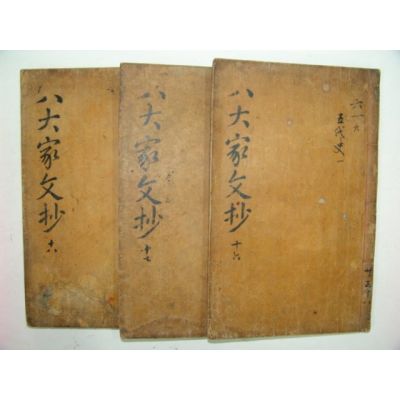 八大家文抄 十六
六一六
五代史一
八大家文抄 十七
八大家文抄 十八